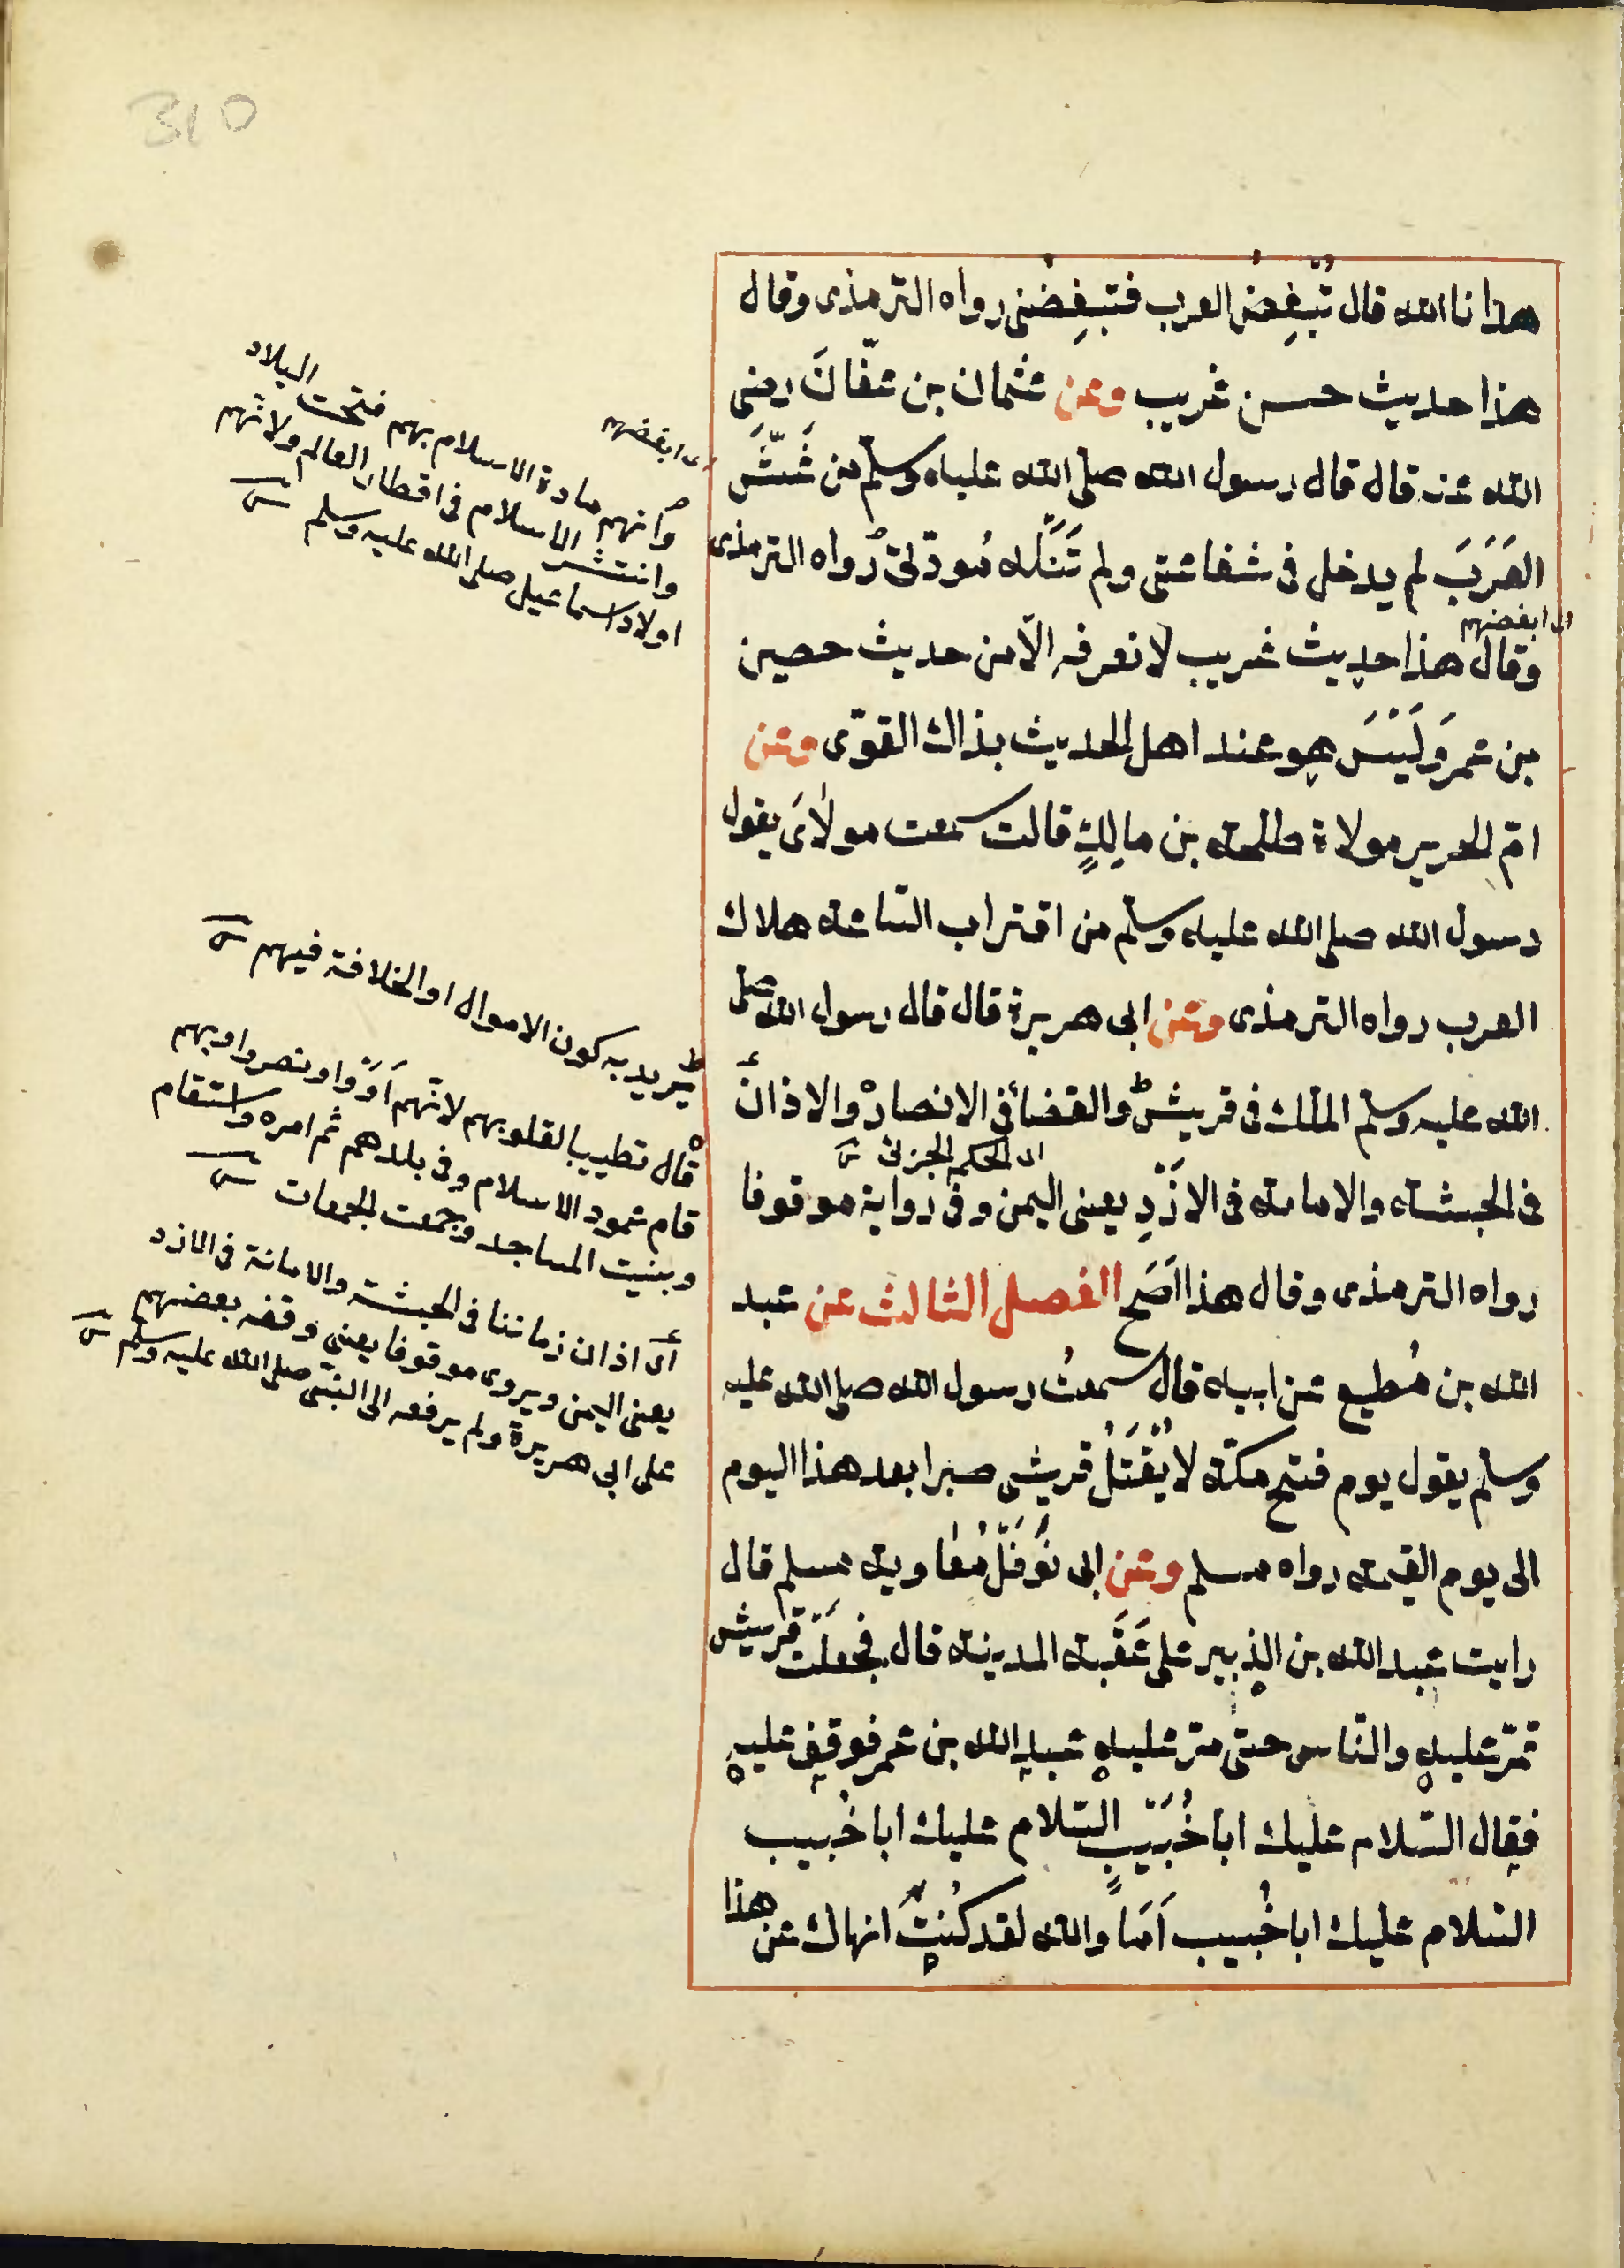 310
هدانا الله قال تُبْغِضُ العرب فتبغِضُنى رواه الترمذى وقال
هذا حديث حسن غريب وعن عثمان بن عفّانَ رضى
الله عنه قال قال رسول الله صلى الله عليه وسلم من غَشَّ
العَرَبَ لم يدخل فى شفاعتى ولم تَنَلْه مُودّتى رواه الترمذى
وقال هذا حديث غريب لا نعرفه الّا من حديث حصين
بن عمر وَلَيْسَ هو عند اهل الحديث بذاك القوّى وعن
امّ الحرير مولاة طلحة بن مالِكٍ قالت سمعت مولاىَ يقول
رسول الله صلى الله عليه وسلم من اقتراب السّاعة هلاك
العرب رواه الترمذى وعن ابى هريرة قال قال رسول الله صلى
الله عليه وسلم الملك فى قريش والقضاء فى الانصار والاذان
فى الحبشة والامانة فى الازْدِ يعنى اليمن وفى رواية موقوفا
رواه الترمذى وقال هذا اَصَح الفصل الثالث عن عبد
الله بن مُطيع عن ابيه قال سمعتُ رسول الله صلى الله عليه
وسلم يقول يوم فتح مكّة لا يُقْتَلُ قريشى صبرا بعد هذا اليوم
الى يوم القيمة رواه مسلم وعن ابى نَوْفَلْ مُعاوية مسلم قال
رايت عبد الله بن الزبير على عَقَبة المدينة قال فجعلَتْ قريش
تمرّ عليه والنّاس حتى مرّ عليه عبد الله بن عمر فوقف عليه
فقال السّلام عليك ابا خُبَيْبٍ السّلام عليك ابا خُبيب
السّلام عليك ابا خُبيب اَمَا والله لقد كُنتُ انهاك عن هذا
اى ابغضهم
وانهم مادة الاسلام بهم فتحت البلاد
وانتشر الاسلام فى اقطار العالم ولانّهم
اولاد اسماعيل صلى الله عليه وسلم
اى ابغضهم
يريد به كون الاموال او الخلافة فيهم
اى الحكم الجزئى
قال تطييبا لقلوبهم لانّهم اَوَوْا ونصروا وبهم
قام عمود الاسلام وفى بلدهم ثم امره واستقام
وبنيت المساجد وجمعت الجمعات
اى اذان زماننا فى الحبشة والامانة فى الازد
يعنى اليمن ويروى موقوفا يعنى وقفه بعضهم
على ابى هريرة ولم يرفعه الى النبّى صلى الله عليه وسلم